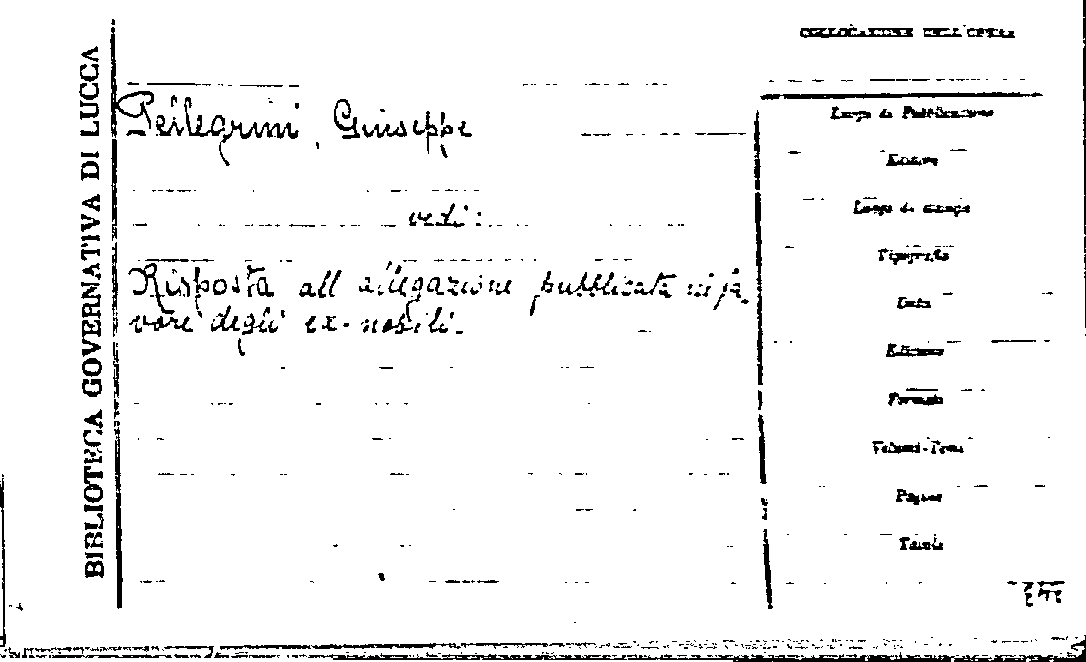 BIBLIOTECA GOVERNATIVA DI LUCCA
COLLOCAZIONE DELL'OPERA
Pellegrini, Giuseppe
vedi:
Risposta all allegazione pubblicata in fa-
vore degli ex-nobili.
Luogo di Pubblicazione
Editore
Luogo di stampa
Tipografia
Data
Edizione
Formato
Volumi-Tomi
Pagine
Tavole